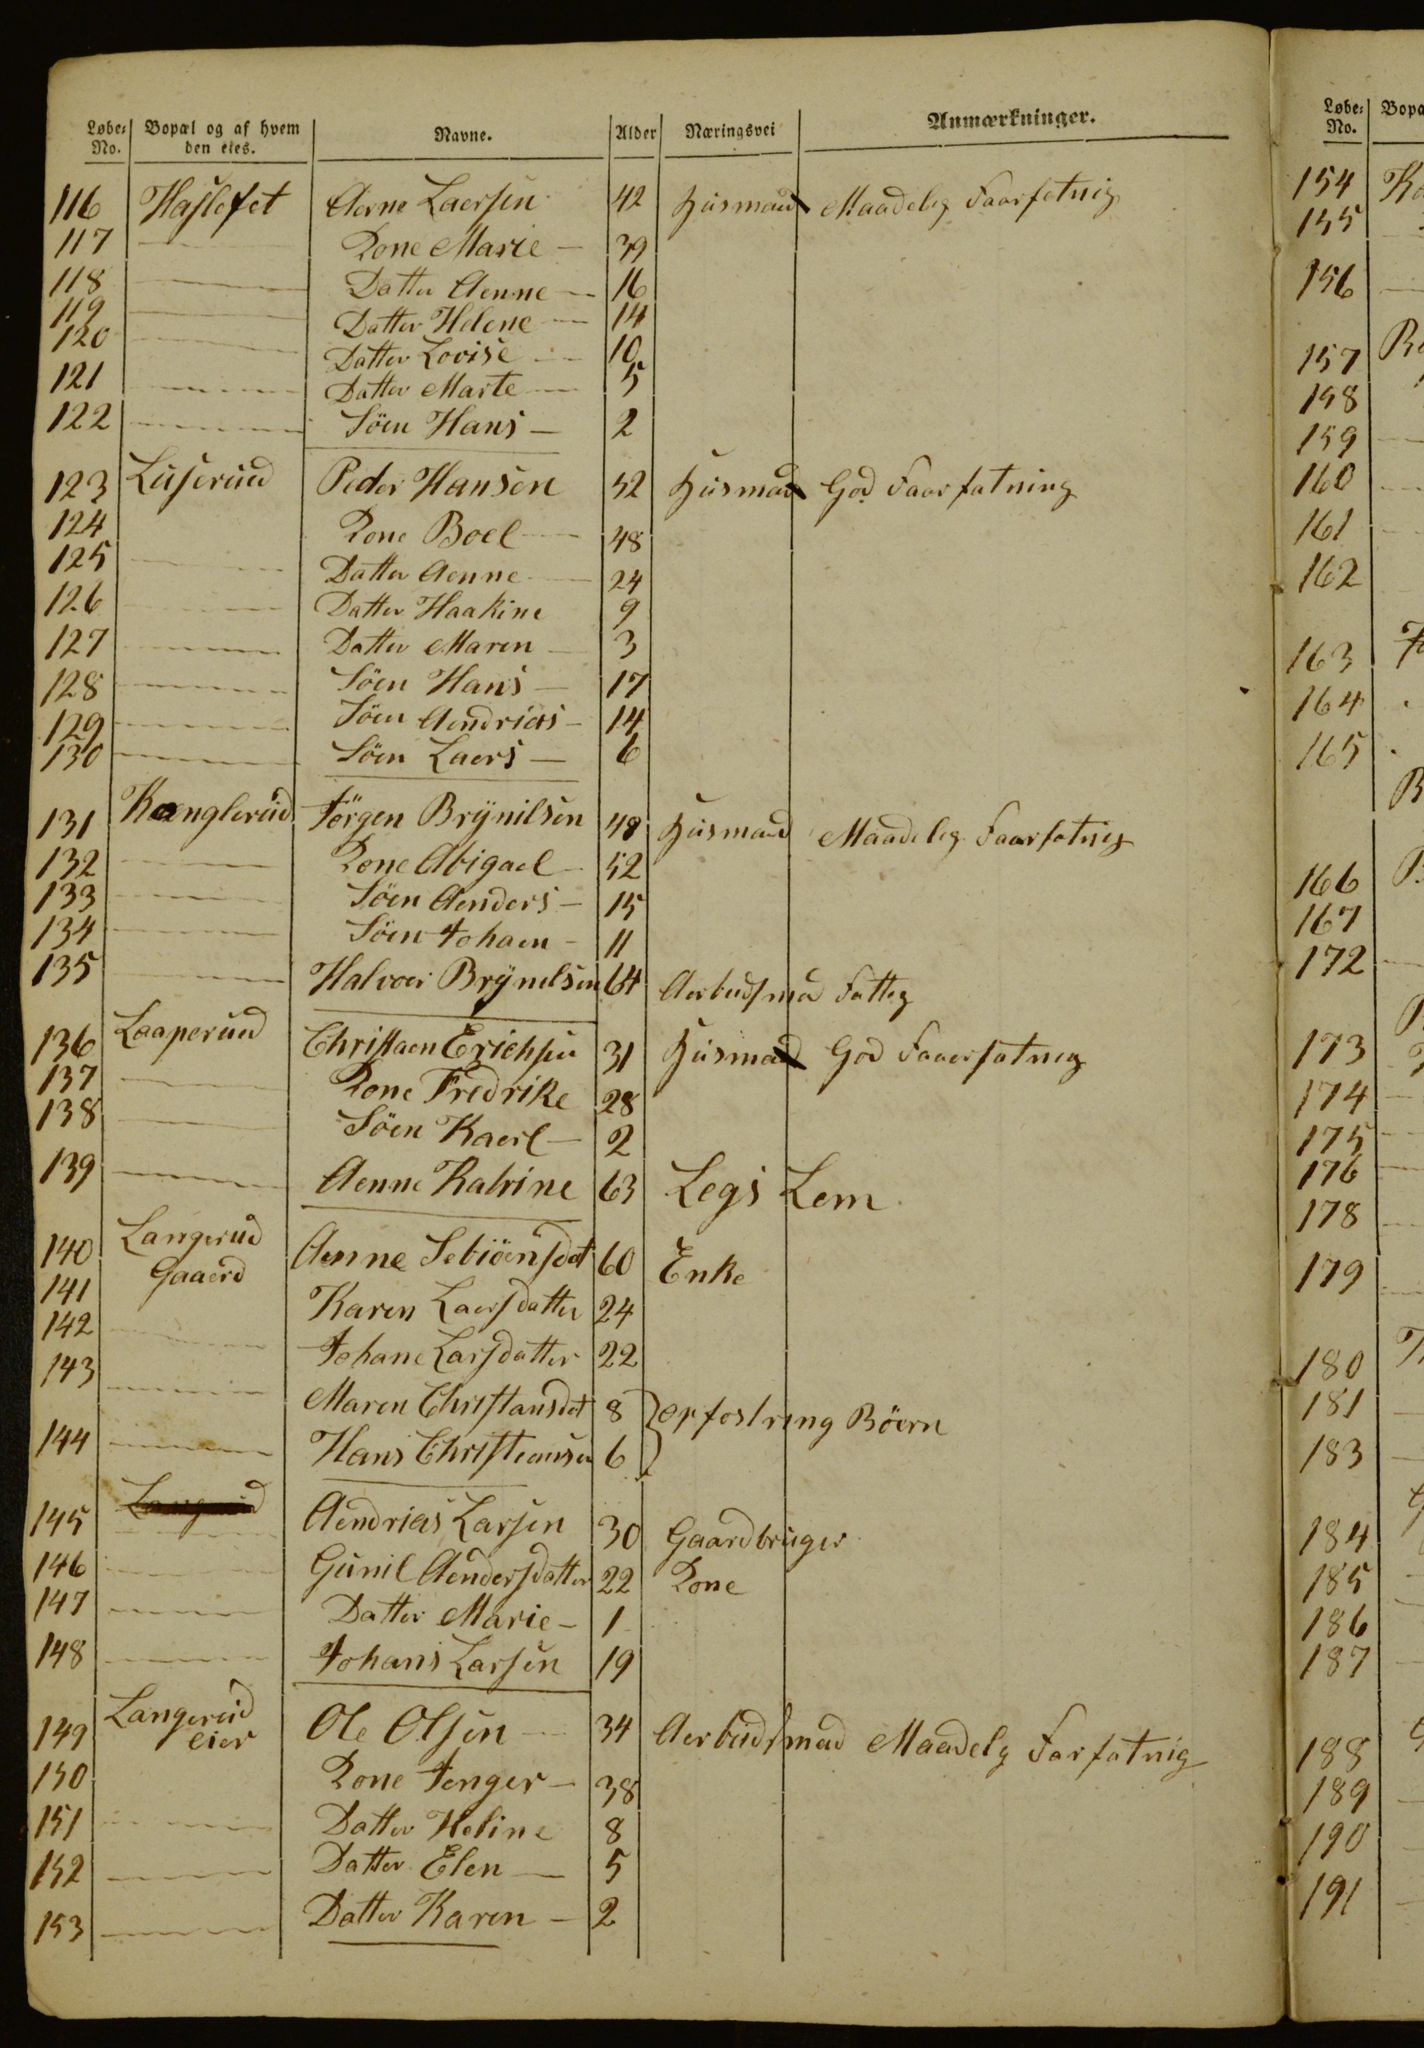 Løbe- No. Bopæl og af hvem den eies. Navne. Alder Næringsvei Anmærkninger.
116 Haslefet Aerne Laersen 42 Husmand Maadelig Faarfatnig
117 Kone Marie 39
118 Datter Aenne 16
119 Datter Helene 14
120 Datter Lovise 10
121 Datter Marte 5
122 Söen Hans 2
123 Luserud Peder Hansen 52 Husmand God Faarfatning
124 Kone Boel 48
125 Datter Aenne 24
126 Datter Haakine 9
127 Datter Maren 3
128 Söen Hans 17
129 Söen Aendrias 14
130 Söen Laers 6
131 Kænglerud Jörgen Brÿnilsen 48 Husmand Maadelig Faarfatnig
132 Kone Abigael 52
133 Söen Aenders 15
134 Söen Johaen 11
135 Halvoer Brÿnelsen 64 Aerbeidsmd Fatteg
136 Laaperud Christaen Erichsen 31 Husmand God Faaerfatneg
137 Kone Fredrike 28
138 Söen Kaerl 2
139 Aenne Katrine 63 Legs Lem
140 Langerud Aenne Sebiöensdat 60 Enke
141 Gaaerd Karen Laersdatter 24
142 Johane Larsdatter 22
143 Maren Christansdat 8 Opfostring Böern
144 Hans Christiansen 6
145 Aendrias Larsen 30 Gaardbruger
146 Gunil Aendersdatter 22 Kone
147 Datter Marie 1
148 Johans Larsen 19
149 Langerud eier Ole Olsen 34 Aerbeidsmad Maadelg Farfatnig
150 Kone Jenger 38
151 Datter Heline 8
152 Datter Elen 5
153 Datter Karen 2
Løbe- No.
154
155
156
157
158
159
160
161
162
163
164
165
166
167
172
173
174
175
176
178
179
180
181
183
184
185
186
187
188
189
190
191